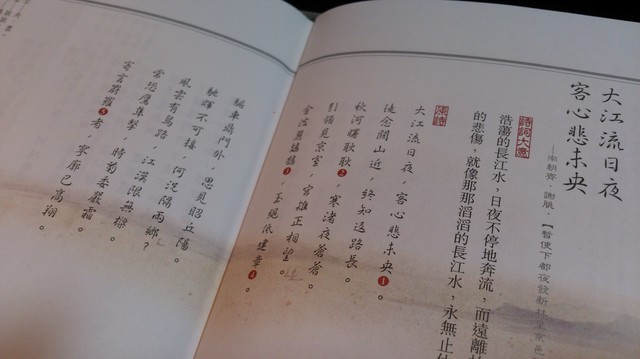 大江流日夜
客心悲未央
——南朝齊．謝朓．【暫使下都夜發新林至京邑
詩詞大意
浩蕩的長江水，日夜不停地奔流，而遠離
的悲傷，就像那那滔滔的長江水，永無止
原詩
大江流日夜，客心悲未央❶。
徒念關山近，終知返路長。
秋河曙耿耿❷，寒渚夜蒼蒼。
引領見京室，宮雉正相望。
金波麗鳷鵲❸，玉繩低建章❹。
驅車鼎門外，思見昭丘陽。
馳暉不可接，何況隔兩鄉？
風雲有鳥路，江漢限無梁。
常恐鷹隼擊，時菊委嚴霜。
寄言罻羅❺者，寥廓已高翔。